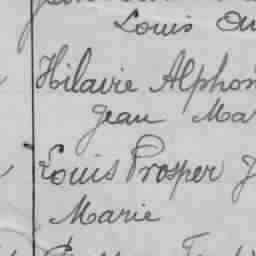 Louis
Hilaire Alphon
Jean Ma
Louis Prosper J
Marie